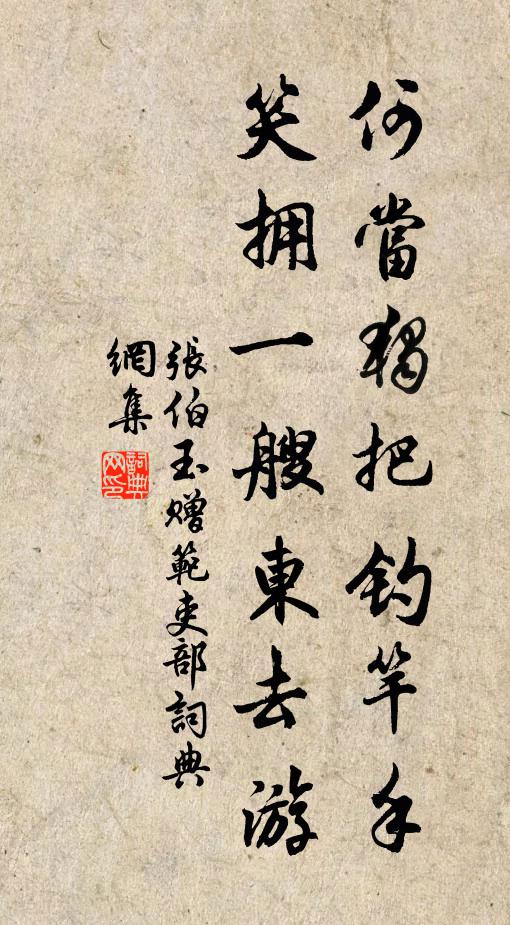 何當獨把釣竿手
笑擁一艘東去游
張伯玉贈範吏部詞典
網集
詞典
網印